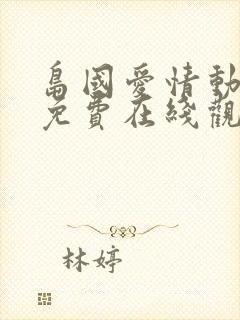 島國愛情動
免費在綫觀
林婷